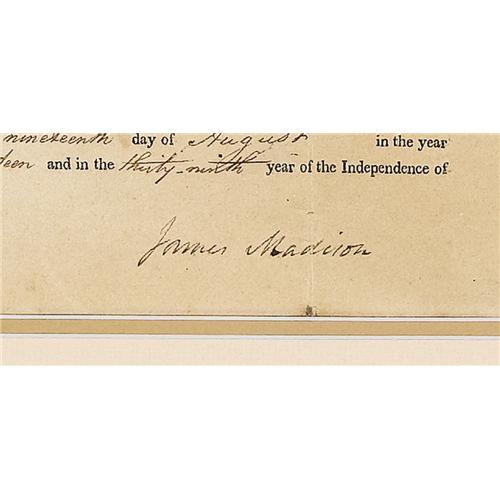 nineteenth day of August in the year
teen and in the thirty-ninth year of the Independence of
James Madison